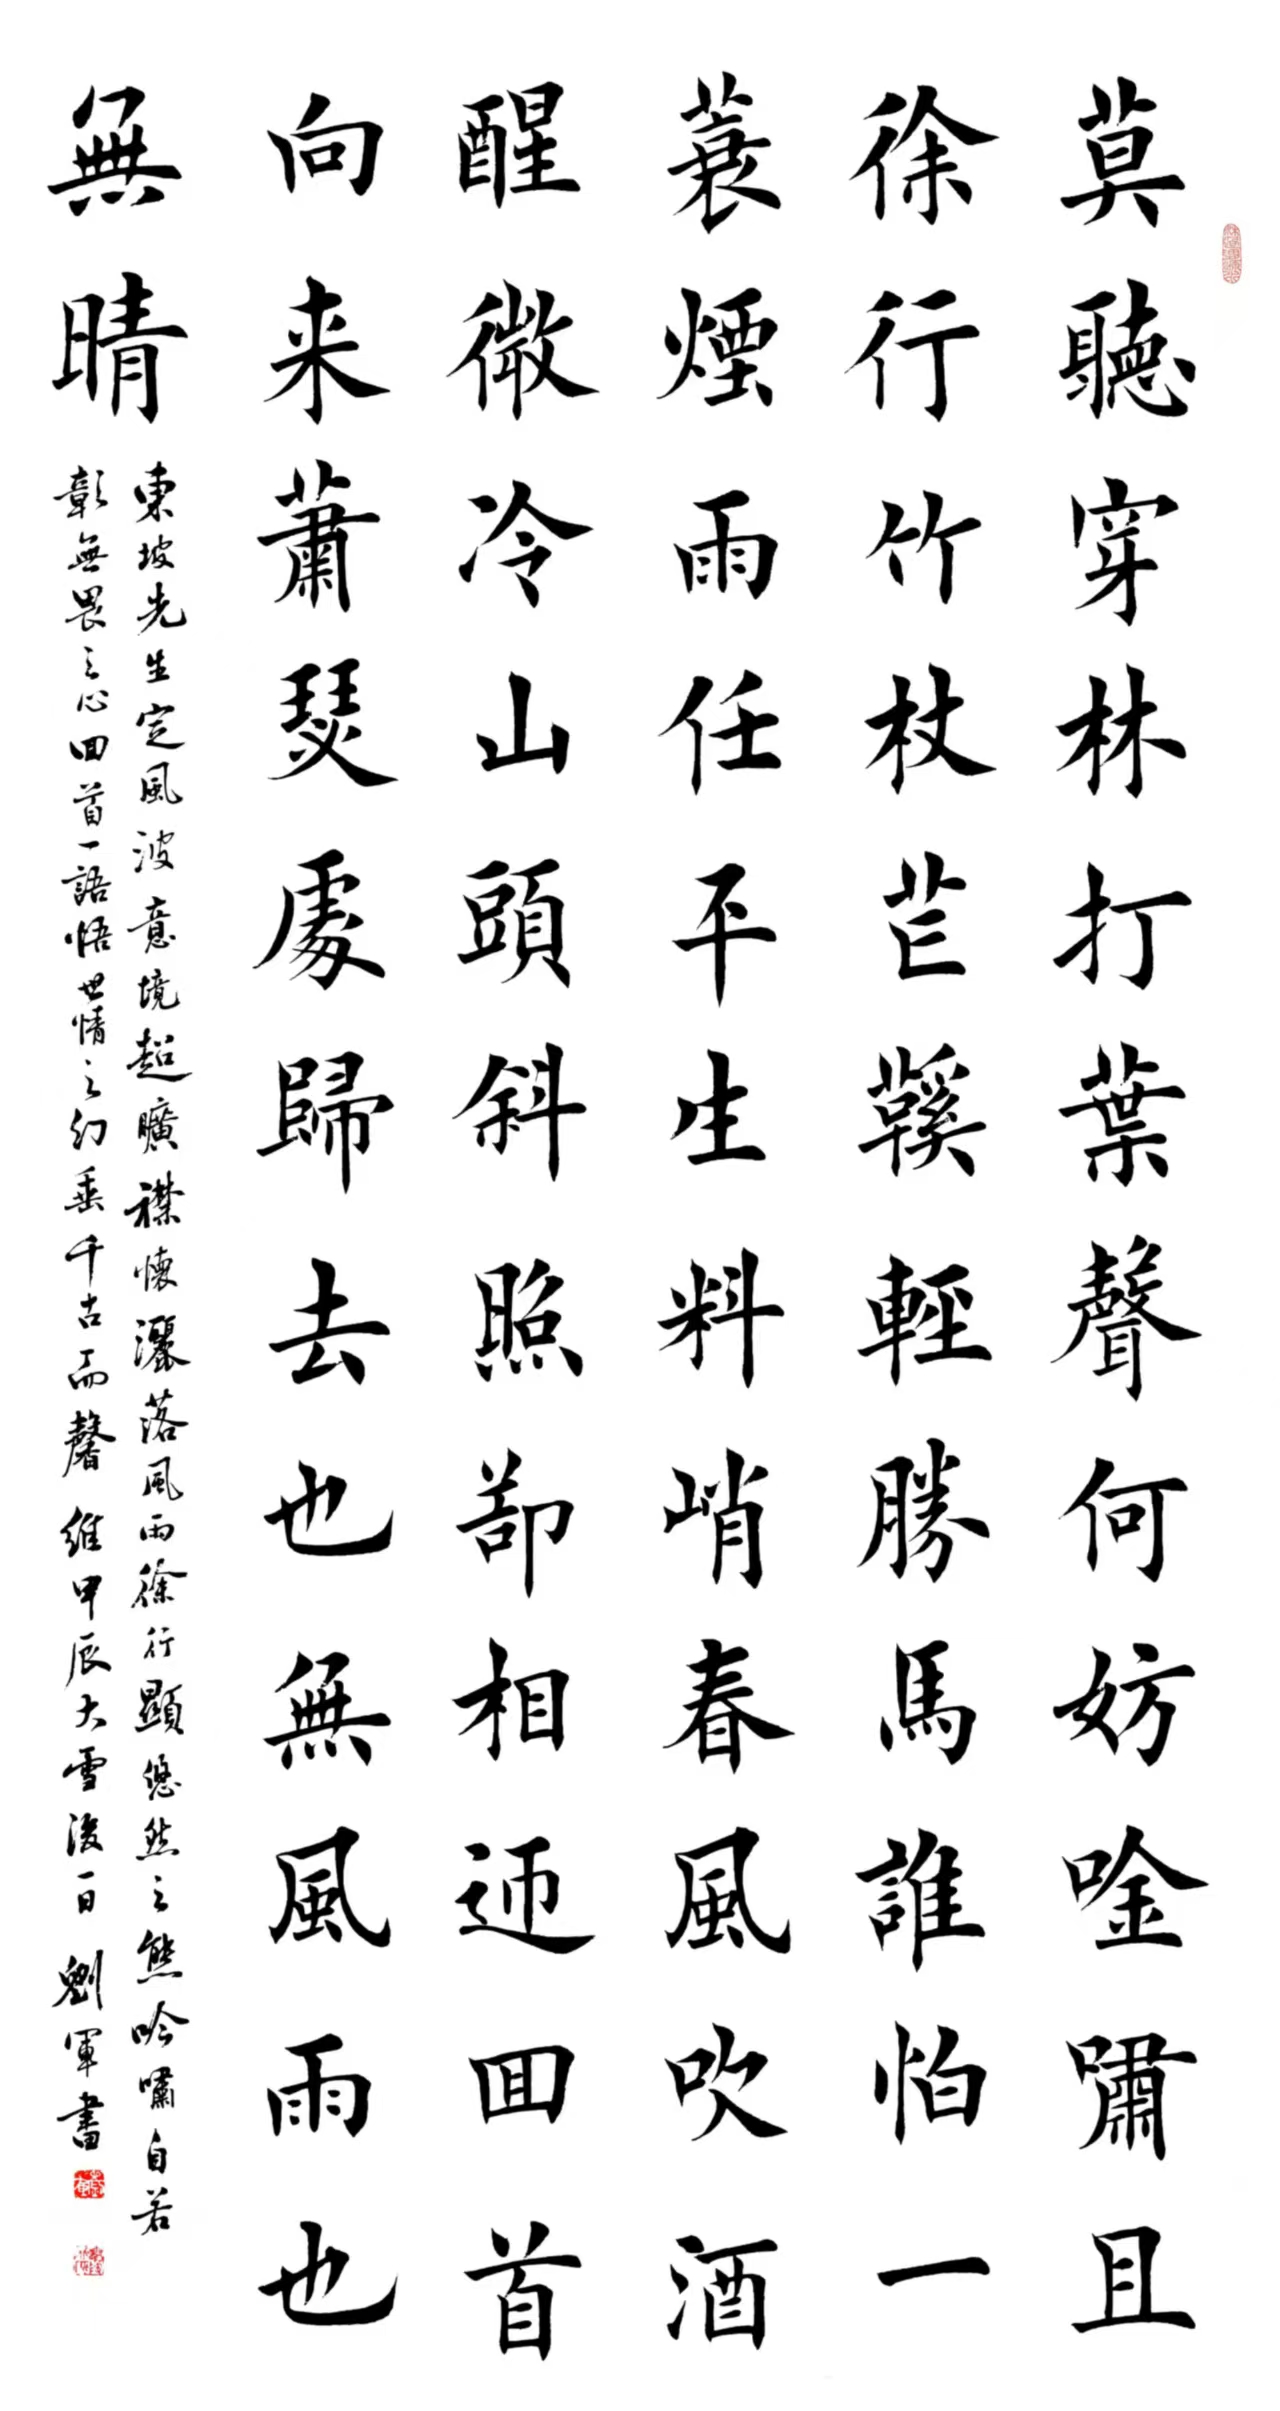 莫聽穿林打葉聲何妨唫嘯且
徐行竹杖芒鞵輕勝馬誰怕一
蓑煙雨任平生料峭春風吹酒
醒微冷山頭斜照却相迎回首
向来蕭瑟處歸去也無風雨也
無晴
東坡先生定風波意境超曠襟懷灑落風雨徐行顯悠然之態吟嘯自若
彰無畏之心回首一語悟世情之幻垂千古而馨維甲辰大雪後一日劉軍書